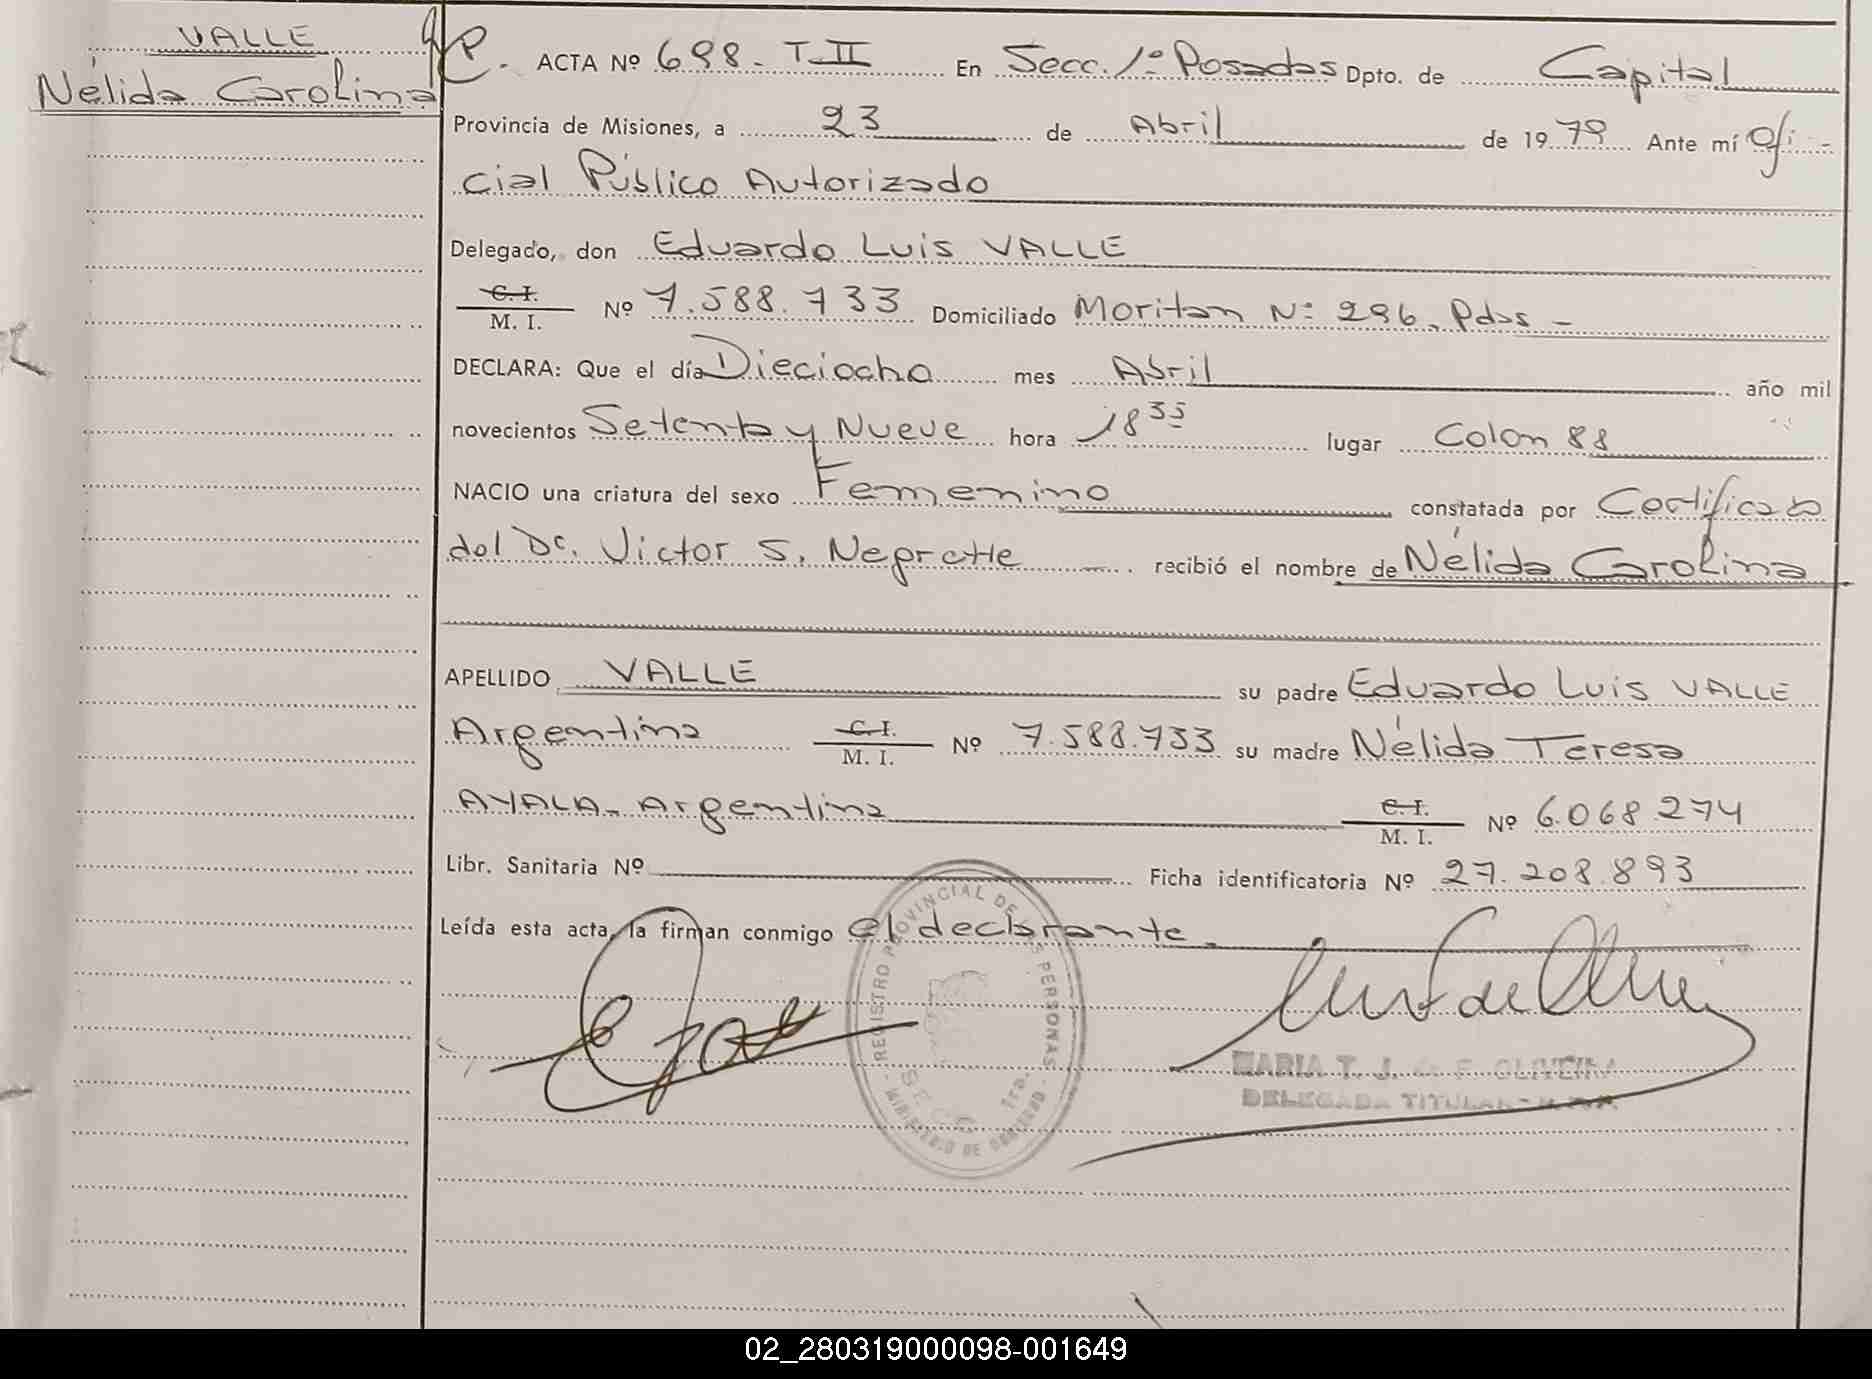 VALLE
Nélida Carolina
ACTA Nº 698 - T II En Secc. 1º Posadas Dpto. de Capital
Provincia de Misiones, a 23 de Abril de 1979 Ante mí Ofi-
cial Público Autorizado
Delegado, don Eduardo Luis VALLE
C. I.
M. I. Nº 7.588.733 Domiciliado Moritan Nº 296, Pdas -
DECLARA: Que el día Dieciocho mes Abril año mil
novecientos Setenta y Nueve hora 18 35 lugar Colon 88
NACIO una criatura del sexo Femenino constatada por Certificado
del Dr. Victor S. recibió el nombre de Nélida Carolina
APELLIDO VALLE su padre Eduardo Luis VALLE
Argentina C. I. M. I. Nº 7.588.733 su madre Nélida Teresa
AYALA - Argentina C. I. M. I. Nº 6.068.274
Libr. Sanitaria Nº Ficha identificatoria Nº 27.208.893
Leída esta acta, la firman conmigo el declarante -
REGISTRO PROVINCIAL DE LAS PERSONAS
SECC. 1ra.
- MINISTERIO DE GOBIERNO -
MARIA T. J. de F. OLIVEIRA
DELEGADA TITULAR
02_280319000098-001649